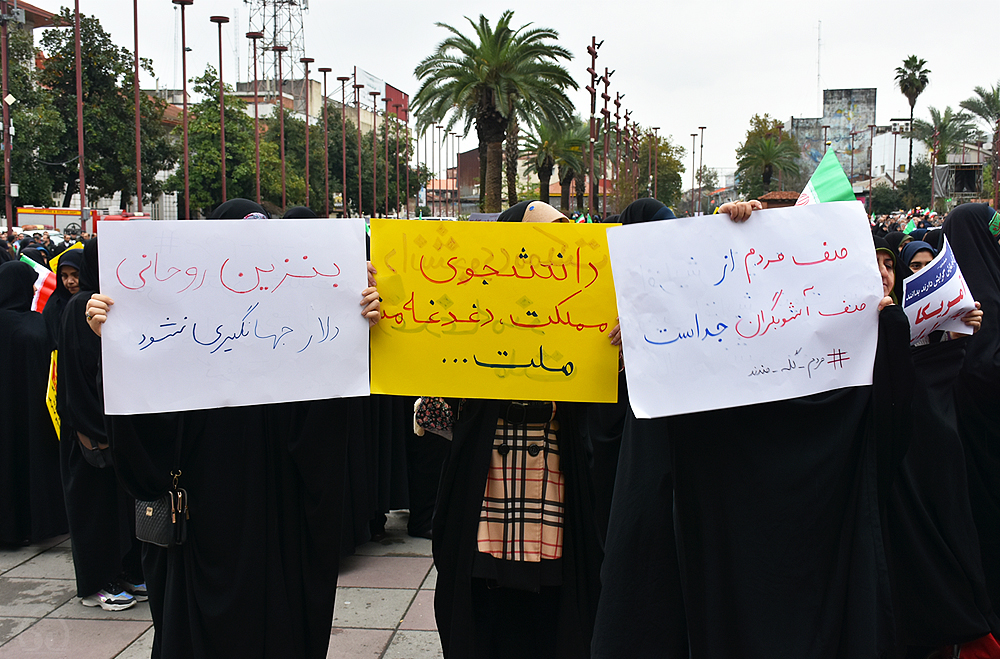 بنزین روحانی
دلار جهانگیری نشود
دانشجوی
مملکت، دغدغه مند
ملت...
صف مردم از
صف آشوبگران جداست
#مردم_گله_مندند
آمریکا